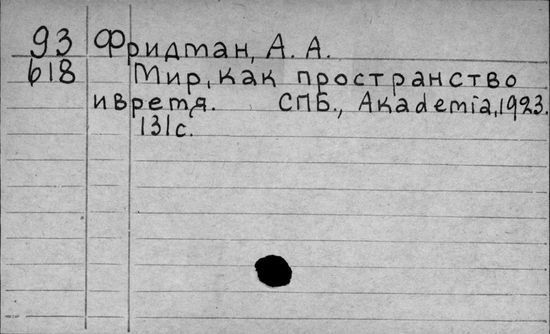 93 Фридман, А. А.
618 Мир, как пространство
и время. СПБ., Akademia, 1923.
131 с.